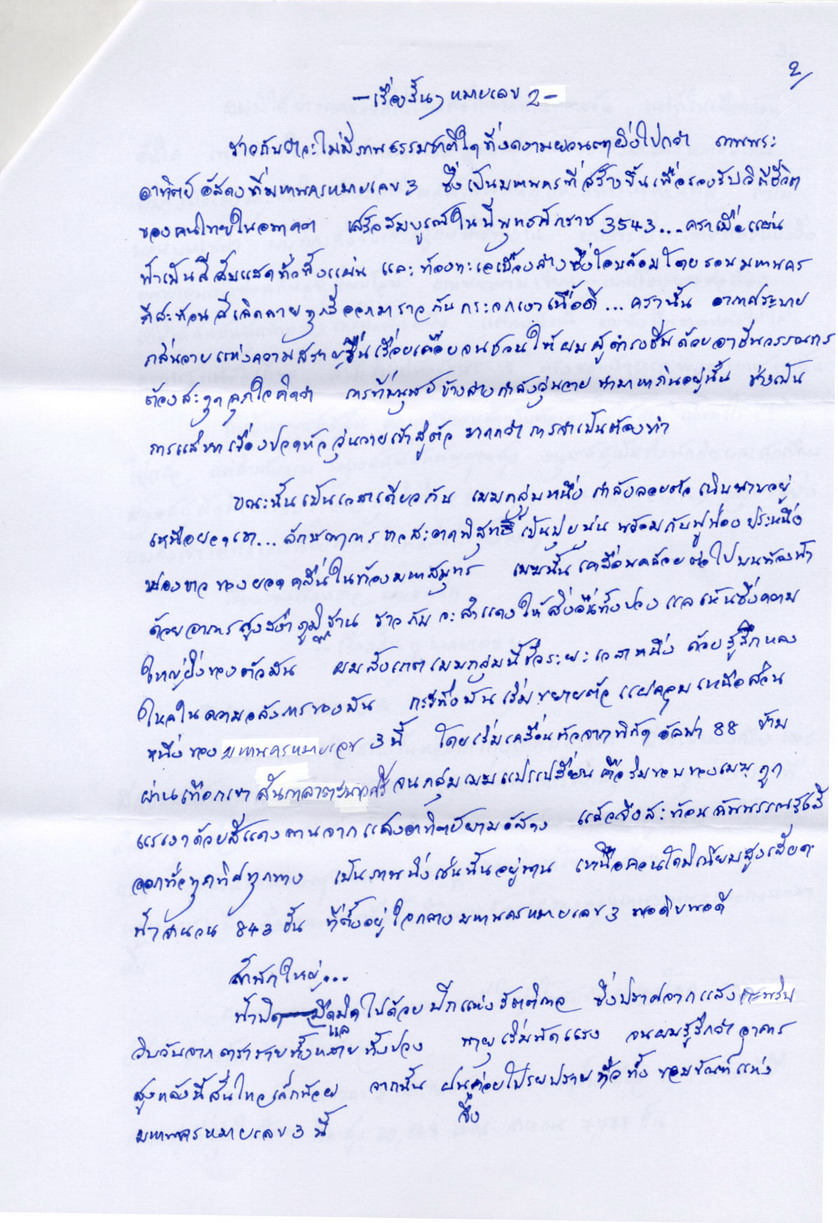 2
- เรื่องสั้นๆ หมายเลข 2 -
ราวกับว่าจะไม่มีภาพธรรมชาติใดที่งดงามชวนตายิ่งไปกว่า ภาพพระ
อาทิตย์อัสดงที่มหานครหมายเลข 3 ซึ่งเป็นมหานครที่สร้างขึ้นเพื่อรองรับวิถีชีวิต
ของคนไทยในอนาคต เสร็จสมบูรณ์ในปีพุทธศักราช 3543...คราเมื่อแผ่น
ฟ้าเป็นสีส้มแสดทั่วทั้งแผ่น และท้องทะเลเบื้องล่างซึ่งโอบล้อมโดยรอบมหานคร
ก็สะท้อนสีเลิศลาย ถูกสีออกมาราวกับกระจกเงาเนื้อดี...ครานั้น อากาศระบาย
กลิ่นอายแห่งความสบายชื่นเรื่อยเฉื่อยจนชวนให้ผม ผู้ดำรงชีพด้วยอาชีพวรรณกร
ต้องสะดุดฉุกใจคิดว่า การที่มนุษย์ข้างล่างกำลังวุ่นวาย ทำมาหากินอยู่นั้น ช่างเป็น
การแส่หาเรื่องปวดหัววุ่นวายเข้าสู่ตัว มากกว่าการจำเป็นต้องทำ
ขณะนั้นเป็นเวลาเดียวกับ เมฆกลุ่มหนึ่ง กำลังลอยตัวเนิบนาบอยู่
เหนือยอดเขา...ลักษณาการขาวสะอาดพิสุทธิ์เป็นปุยนุ่น พร้อมกับฟูฟ่องประหนึ่ง
ฟองขาวของยอดคลื่นในท้องมหาสมุทร เมฆนั้นเคลื่อนคล้อยต่อไปบนท้องฟ้า
ด้วยอาการสูงสง่าภูมิฐาน ราวกับจะสำแดงให้สิ่งอื่นทั้งปวง แลเห็นซึ่งความ
ใหญ่ยิ่งของตัวมัน ผมสังเกตเมฆกลุ่มนี้ชั่วระยะเวลาหนึ่ง ด้วยรู้สึกหลง
ใหลในความอลังการของมัน กระทั่งมันเริ่มขยายตัวแผ่คลุมเหนือส่วน
หนึ่งของมหานครหมายเลข 3 นี้ โดยเริ่มเคลื่อนตัวจากพิกัดอัลฟา 88 ข้าม
ผ่านเทือกเขา จนกลุ่มเมฆแปรเปลี่ยน คือริมขอบของเมฆถูก
แรเงาด้วยสีแดงฉานจากแสงอาทิตย์ยามอัสดง แล้วจึงสะท้อนฉัพพรรณรังสี
ออกทั่วทุกทิศทุกทาง เป็นภาพนิ่งเช่นนั้นอยู่นาน เหนือคอนโดมิเนียมสูงเสียด
ฟ้าจำนวน 843 ชั้น ที่ตั้งอยู่ใจกลางมหานครหมายเลข 3 พอดิบพอดี
สักพักใหญ่...
ฟ้าปิด มืดมิดไปด้วยปีกแห่งรัตติกาล ซึ่งปราศจากแสงกะพริบ
วิบวับจากดาราราย แล ทั้งหลายทั้งปวง พายุเริ่มพัดแรง จนผมรู้สึกว่าอาคาร
สูงหลังนี้สั่นไหวเล็กน้อย จากนั้น ฝน จึง ค่อยโปรยปรายทั่วทั้งขอบขัณฑ์แห่ง
มหานครหมายเลข 3 นี้